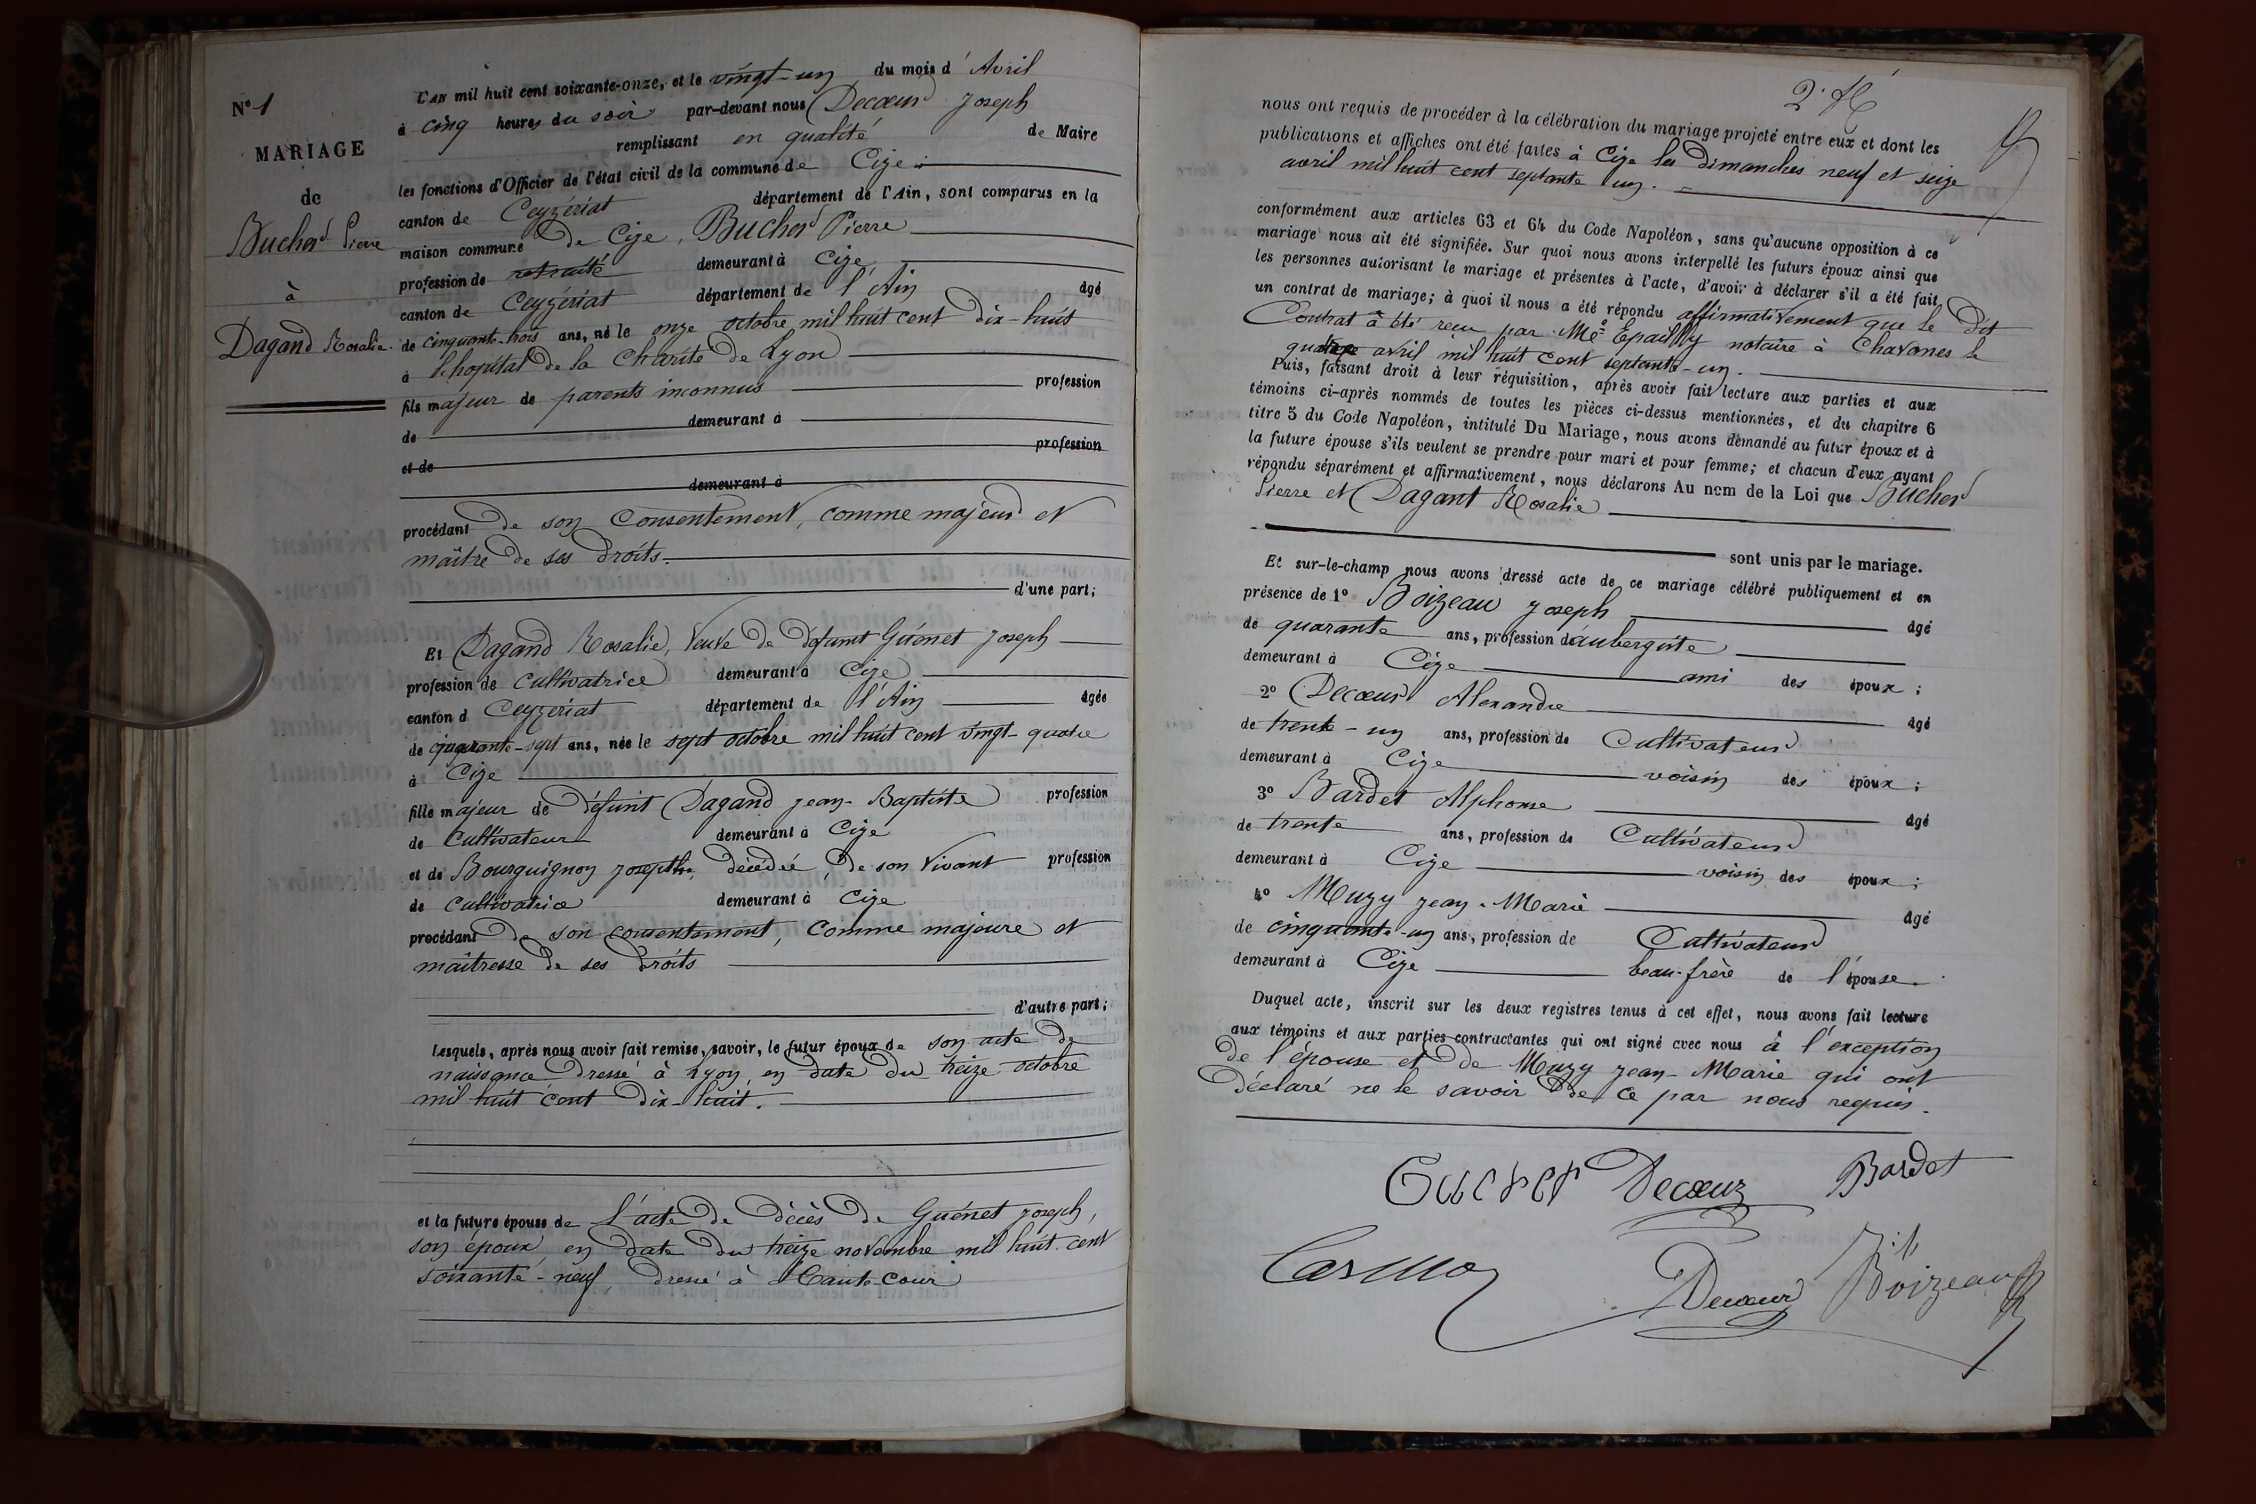 N° 1
MARIAGE
de
Bucher Pierre
à
Dagand Rosalie
L'an mil huit cent soixante-onze, et le vingt-un du mois d'Avril
à cinq heures du soir par-devant nous Decoeur Joseph
remplissant en qualité de Maire
les fonctions d'Officier de l'état civil de la commune de Cize
canton de Ceyzériat département de l'Ain, sont comparus en la
maison commune de Cize, Bucher Pierre
profession de retraité demeurant à Cize
canton de Ceyzériat département de l'Ain âgé
de cinquante-trois ans, né le onze octobre mil huit cent dix-huit
à l'hopital de la Charité de Lyon
fils majeur de parents inconnus profession
de demeurant à
et de profession
demeurant à
procédant de son consentement, comme majeur et
maître de ses droits.
d'une part;
Et Dagand Rosalie, veuve de défunt Guénet Joseph
profession de cultivatrice demeurant à Cize
canton d Ceyzeriat département de l'Ain âgée
de quarante-sept ans, née le sept octobre mil huit cent vingt-quatre
à Cize
fille majeur de défunt Dagand Jean-Baptiste profession
de cultivateur demeurant à Cize
et de Bourguignon Josephte, décédée, de son vivant profession
de cultivatrice demeurant à Cize
procédant de son consentement, comme majeure et
maîtresse de ses droits
d'autre part;
Lesquels, après nous avoir fait remise, savoir, le futur époux de son acte de
naissance dressé à Lyon, en date du treize octobre
mil huit cent dix-huit.
et la future épouse de l'acte de décès de Guénet Joseph,
son époux en date du treize novembre mil huit cent
soixante-neuf dressé à Hautecour
nous ont requis de procéder à la célébration du mariage projeté entre eux et dont les
publications et affiches ont été faites à Cize les dimanches neuf et seize
avril mil huit cent septante un.
conformément aux articles 63 et 64 du Code Napoléon, sans qu'aucune opposition à ce
mariage nous ait été signifiée. Sur quoi nous avons interpellé les futurs époux ainsi que
les personnes autorisant le mariage et présentes à l'acte, d'avoir à déclarer s'il a été fait
un contrat de mariage; à quoi il nous a été répondu affirmativement que le dit
Contrat à été reçu par Me Epailly notaire à Chavannes le
avril mil huit cent septante-un.
Puis, faisant droit à leur réquisition, après avoir fait lecture aux parties et aux
témoins ci-après nommés de toutes les pièces ci-dessus mentionnées, et du chapitre 6
titre 5 du Code Napoléon, intitulé Du Mariage, nous avons demandé au futur époux et à
la future épouse s'ils veulent se prendre pour mari et pour femme; et chacun d'eux ayant
répondu séparément et affirmativement, nous déclarons Au nom de la Loi que Bucher
Pierre et Dagant Rosalie
sont unis par le mariage.
Et sur-le-champ nous avons dressé acte de ce mariage célébré publiquement et en
présence de 1° Boizeau Joseph âgé
de quarante ans, profession d'aubergiste
demeurant à Cize ami des époux;
2° Decoeur Alexandre âgé
de trente-un ans, profession de Cultivateur
demeurant à Cize voisin des époux;
3° Bardet Alphonse âgé
de trente ans, profession de Cultivateur
demeurant à Cize voisin des époux;
4° Muzy Jean-Marie âgé
de cinquante-un ans, profession de Cultivateur
demeurant à Cize beau-frère de l'épouse.
Duquel acte, inscrit sur les deux registres tenus à cet effet, nous avons fait lecture
aux témoins et aux parties contractantes qui ont signé avec nous à l'exception
de l'épouse et de Muzy Jean-Marie qui ont
déclaré ne le savoir de ce par nous requis.
Decoeur Bardet
Decoeur Boizeau